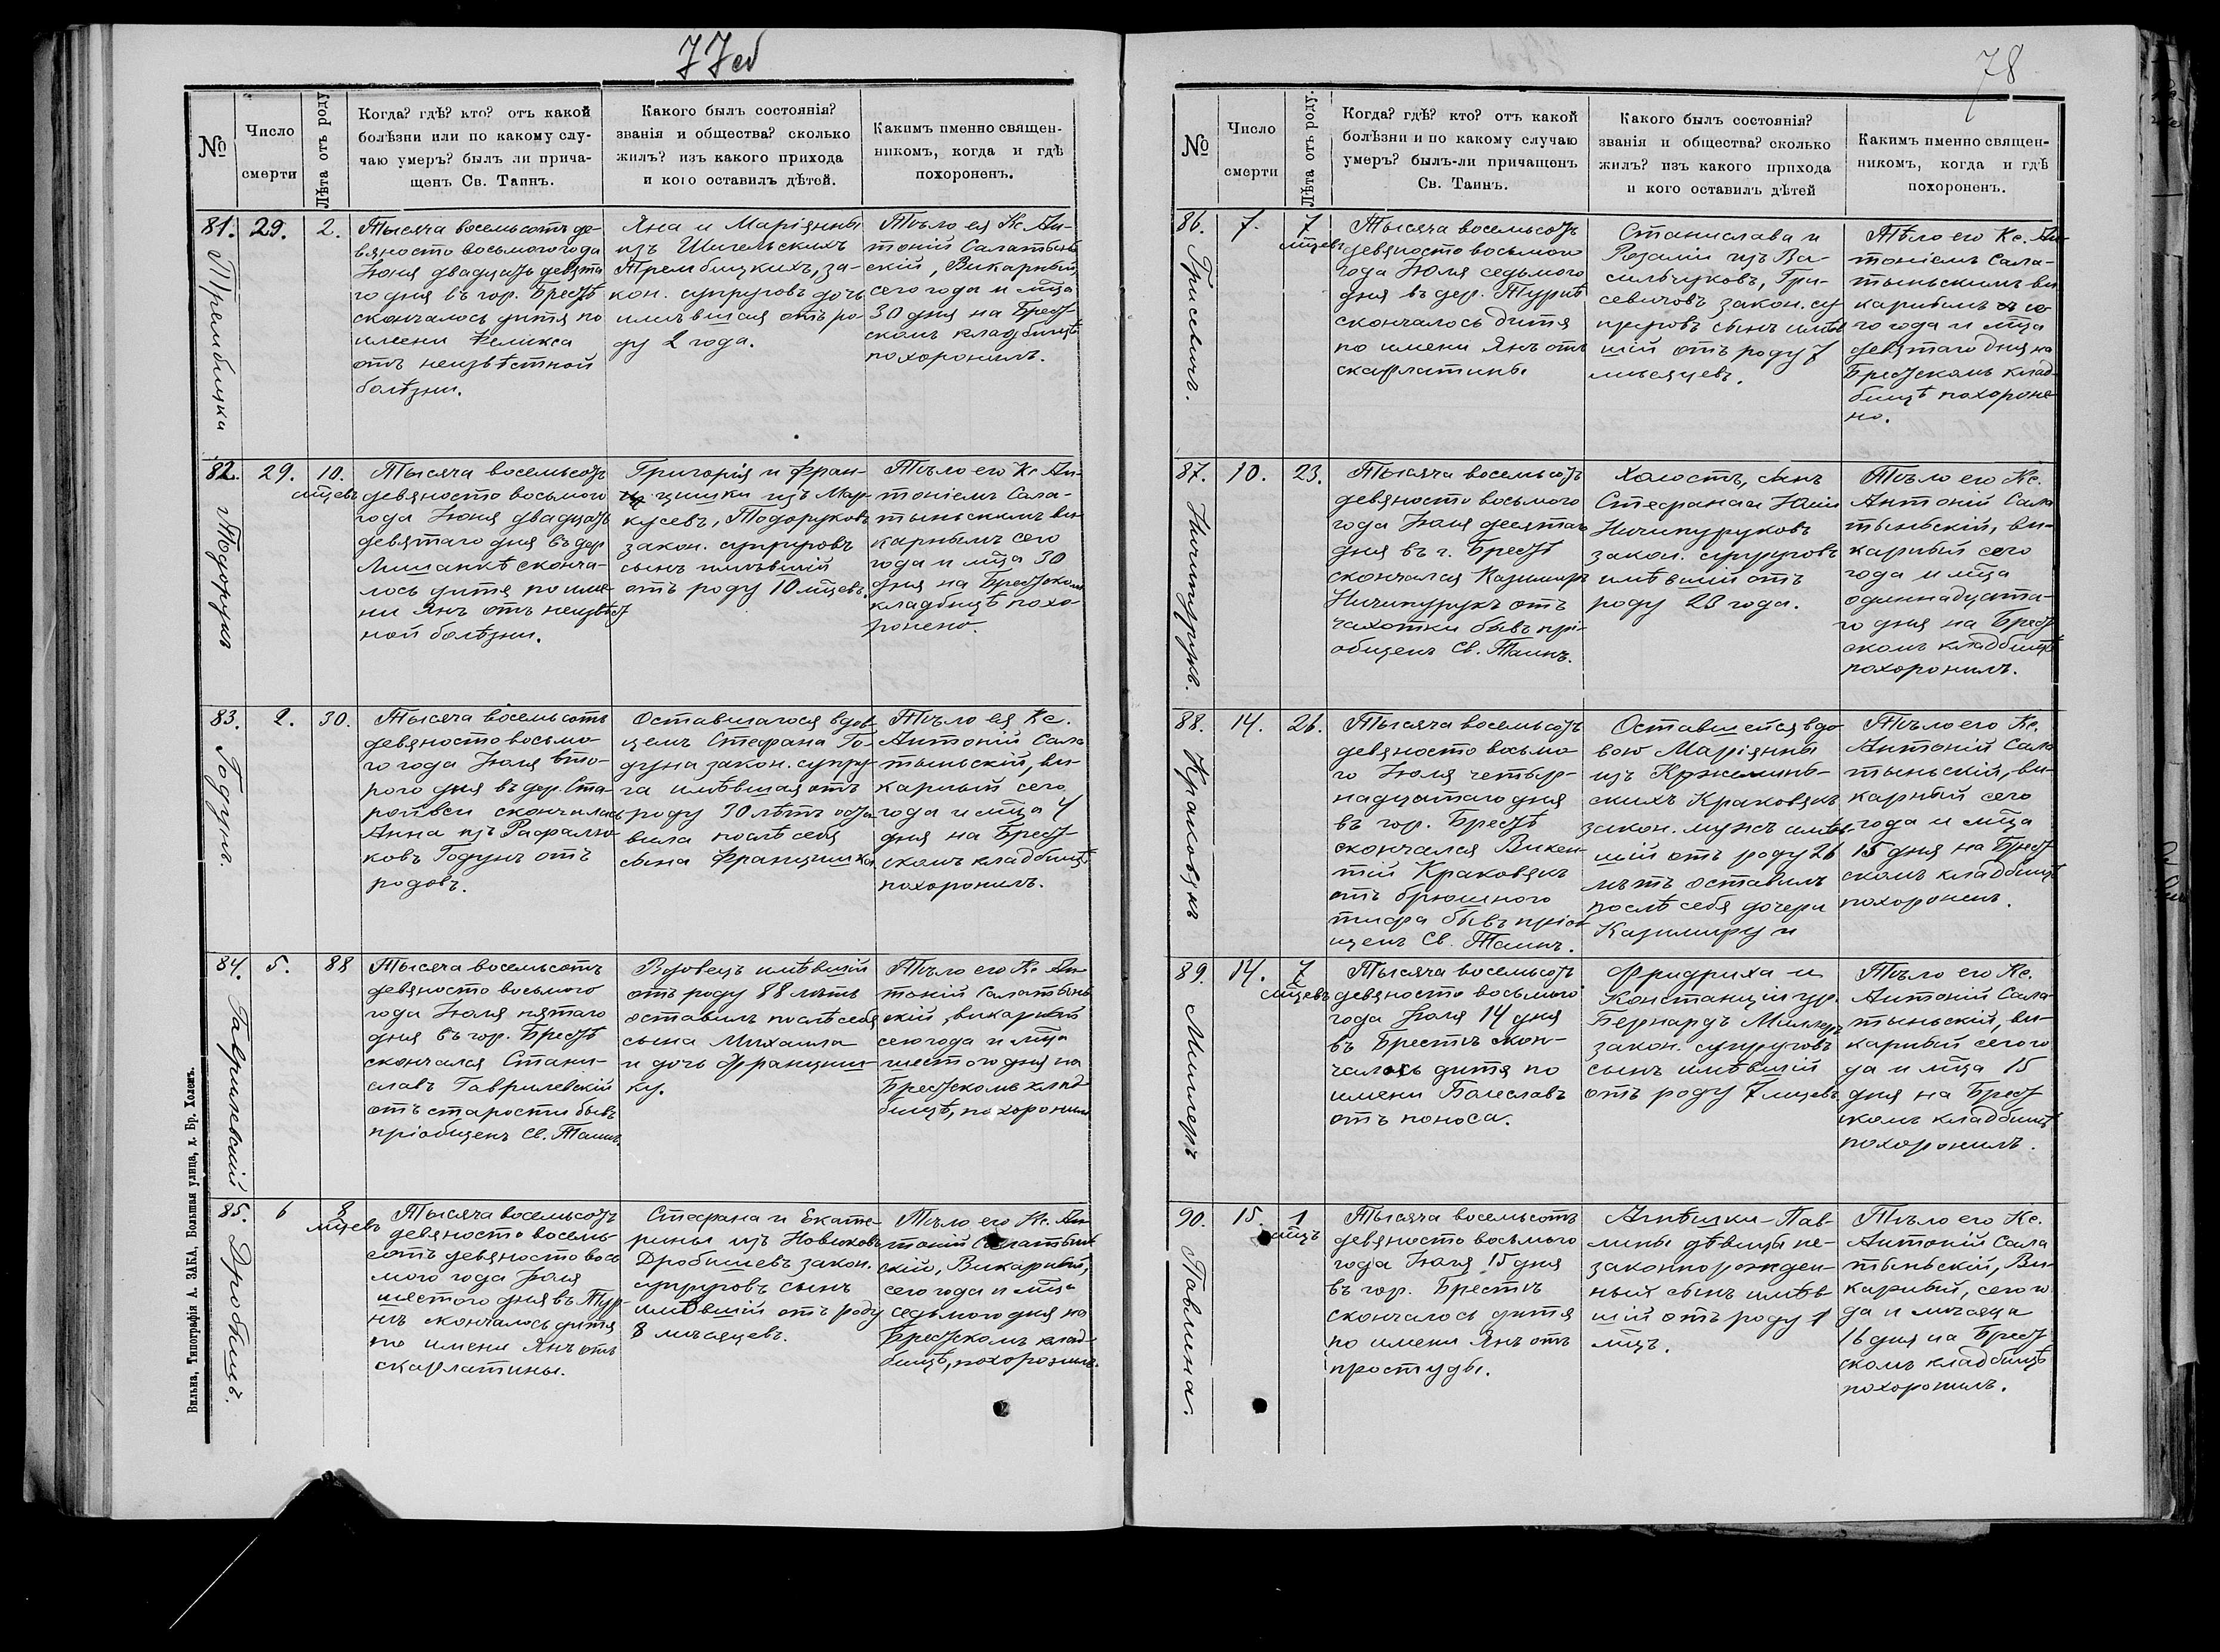 77об
№
Число
смерти
Лѣта отъ роду
Когда? гдѣ? кто? отъ какой
болѣзни или по какому слу-
чаю умеръ? былъ ли прича-
щенъ Св. Таинъ.
Какого былъ состоянія?
званія и общества? сколько
жилъ? изъ какого прихода
и кого оставилъ дѣтей.
Какимъ именно священ-
никомъ, когда и гдѣ
похороненъ.
81.
Трембицка
29.
2.
Тысяча восемьсотъ де-
вяносто восьмого года
Іюня двадцать девята
го дня въ гор. Брестѣ
скончалось дитя по
имени Феликса
отъ неизвѣстной
болѣзни.
Яна и Маріянны
изъ Шигельскихъ
Трембицкихъ, за-
кон. супруговъ дочь
имѣвшая отъ ро-
ду 2 года.
Тѣло ея Кс. Ан-
тоній Салатынь
скій, Викарный
сего года и мца
30 дня на Брест-
скомъ кладбищѣ
похоронилъ.
82.
Тодорукъ
29.
10.
мцевъ
Тысяча восемьсотъ
девяносто восьмого
года Іюня двадцать
девятаго дня въ дер
сконча-
лось дитя по име
ни Янъ отъ неизвѣст
ной болѣзни.
Григорія и Фран-
цишки изъ Мар-
кусевъ, Тодоруковъ
закон. супруговъ
сынъ имѣвшій
отъ роду 10 мцевъ.
Тѣло его Кс. Ан-
тоніемъ Сала-
тыньскимъ ви
карнымъ сего
года и мца 30
дня на Брестскомъ
кладбищѣ похо-
ронено.
83.
Годунъ.
2.
30.
Тысяча восемьсотъ
девяносто восьмо
го года Іюля вто-
рого дня въ дер. Ста-
ройвси скончалась
Анна изъ Рафалю
ковъ Годунъ отъ
родовъ.
Оставшагося вдов-
цемъ Стефана Го-
дуна закон. супру-
га имѣвшая отъ
роду 30 лѣтъ оста
вила послѣ себя
сына Францишка
Тѣло ея Кс.
Антоній Сала
тыньскій, ви-
карный сего
года и мца 4
дня на Брест-
скомъ кладбищѣ
похоронилъ.
84.
Гаврилевскій
5.
88
Тысяча восемьсотъ
девяносто восьмого
года Іюля пятаго
дня въ гор. Брестѣ
скончался Стани-
славъ Гаврилевскій
отъ старости бывъ
пріобщенъ Св. Таинъ.
Вдовецъ имѣвшій
отъ роду 88 лѣтъ
оставилъ послѣ себя
сына Михаила
и дочь Францишк
ку.
Тѣло его Кс. Ан
тоній Салатынь
скій, викарный
сего года и мца
шестого дня на
Брестскомъ клад
бищѣ, похоронилъ
85.
Дробишъ.
6
8
мцевъ
Тысяча восемьсотъ
девяносто восемь
сотъ девяносто вось
мого года Іюля
шестого дня въ Тур-
нѣ скончалось дитя
по имени Янъ отъ
скарлатины.
Стефана и Екате-
рины изъ Новиковъ
Дробишевъ закон.
супруговъ сынъ
имѣвшій отъ роду
8 мѣсяцевъ.
Тѣло его Кс. Ан
тоній Салатынь
скій, Викарный,
сего года и мца
седьмого дня на
Брестскомъ клад-
бищѣ, похоронилъ.
Вильна, Типографія А. ЗАКА, Большая улица, д. Бр. Холемъ.
78
№
Число
смерти
Лѣта отъ роду.
Когда? гдѣ? кто? отъ какой
болѣзни и по какому случаю
умеръ? былъ-ли причащенъ
Св. Таинъ.
Какого былъ состоянія?
званія и общества? сколько
жилъ? изъ какого прихода
и кого оставилъ дѣтей
Какимъ именно священ-
никомъ, когда и гдѣ
похороненъ.
86.
Грисевичъ.
7.
7
мцевъ
Тысяча восемьсотъ
девяносто восьмого
года Іюля седьмого
дня въ дер. Турнѣ
скончалось дитя
по имени Янъ отъ
скарлатины
Станислава и
Розаліи изъ Ва-
сильчуковъ, Гри-
севичовъ закон. су
пруговъ сынъ имѣв
шій отъ роду 7
мѣсяцевъ.
Тѣло его Кс. Ан-
тоніемъ Сала-
тыньскимъ ви
карнымъ се
го года и мца
девятаго дня на
Брестскомъ клад-
бищѣ похороне-
но.
87.
Ничипурукъ.
10.
23.
Тысяча восемьсотъ
девяносто восьмого
года Іюля десятаго
дня въ г. Брестѣ
скончался Казимиръ
Ничипурукъ отъ
чахотки бывъ прі-
общенъ Св. Таинъ.
Холостъ, сынъ
Стефана и Юліи
Ничипуруковъ
закон. супруговъ
имѣвшій отъ
роду 23 года.
Тѣло его Кс.
Антоній Сала
тыньскій, ви-
карный сего
года и мца
одиннадцата-
го дня на Брест
скомъ кладбищѣ
похоронилъ.
88.
Краковякъ
14.
26.
Тысяча восемьсотъ
девяносто восьмо-
го Іюля четыр-
надцатаго дня
въ гор. Брестѣ
скончался Викен-
тій Краковякъ
отъ брюшного
тифа бывъ пріоб
щенъ Св. Таинъ.
Оставшейся вдо
вою Маріянны
изъ
скихъ Краковякъ
закон. мужъ имѣв-
шій отъ роду 26
лѣтъ оставилъ
послѣ себя дочери
Казимиру и
Тѣло его Кс.
Антоній Сала
тыньскій, ви-
карный сего
года и мца
15 дня на Брест
скомъ кладбищѣ
похороненъ.
89.
Миллеръ
14.
7
мцевъ
Тысяча восемьсотъ
девяносто восьмого
года Іюля 14 дня
въ Брестѣ скон-
чалось дитя по
имени Болеславъ
отъ поноса.
Фридриха и
Констанціи ур.
Бернардъ Миллеръ
закон. супруговъ
сынъ имѣвшій
отъ роду 7 мцевъ
Тѣло его Кс.
Антоній Сала-
тыньскій, ви-
карный сего го
да и мца 15
дня на Брест
скомъ кладбищѣ
похоронилъ.
90.
Павлина.
15.
1
мцъ
Тысяча восемьсотъ
девяносто восьмого
года Іюля 15 дня
въ гор. Брестѣ
скончалось дитя
по имени Янъ отъ
простуды.
Агнѣшки Пав-
лины дѣвицы не-
законнорожден-
ный сынъ имѣв-
шій отъ роду 1
мцъ.
Тѣло его Кс.
Антоній Сала
тыньскій, Ви-
карный, сего го
да и мѣсяца
16 дня на Брест
скомъ кладбищѣ
похоронилъ.